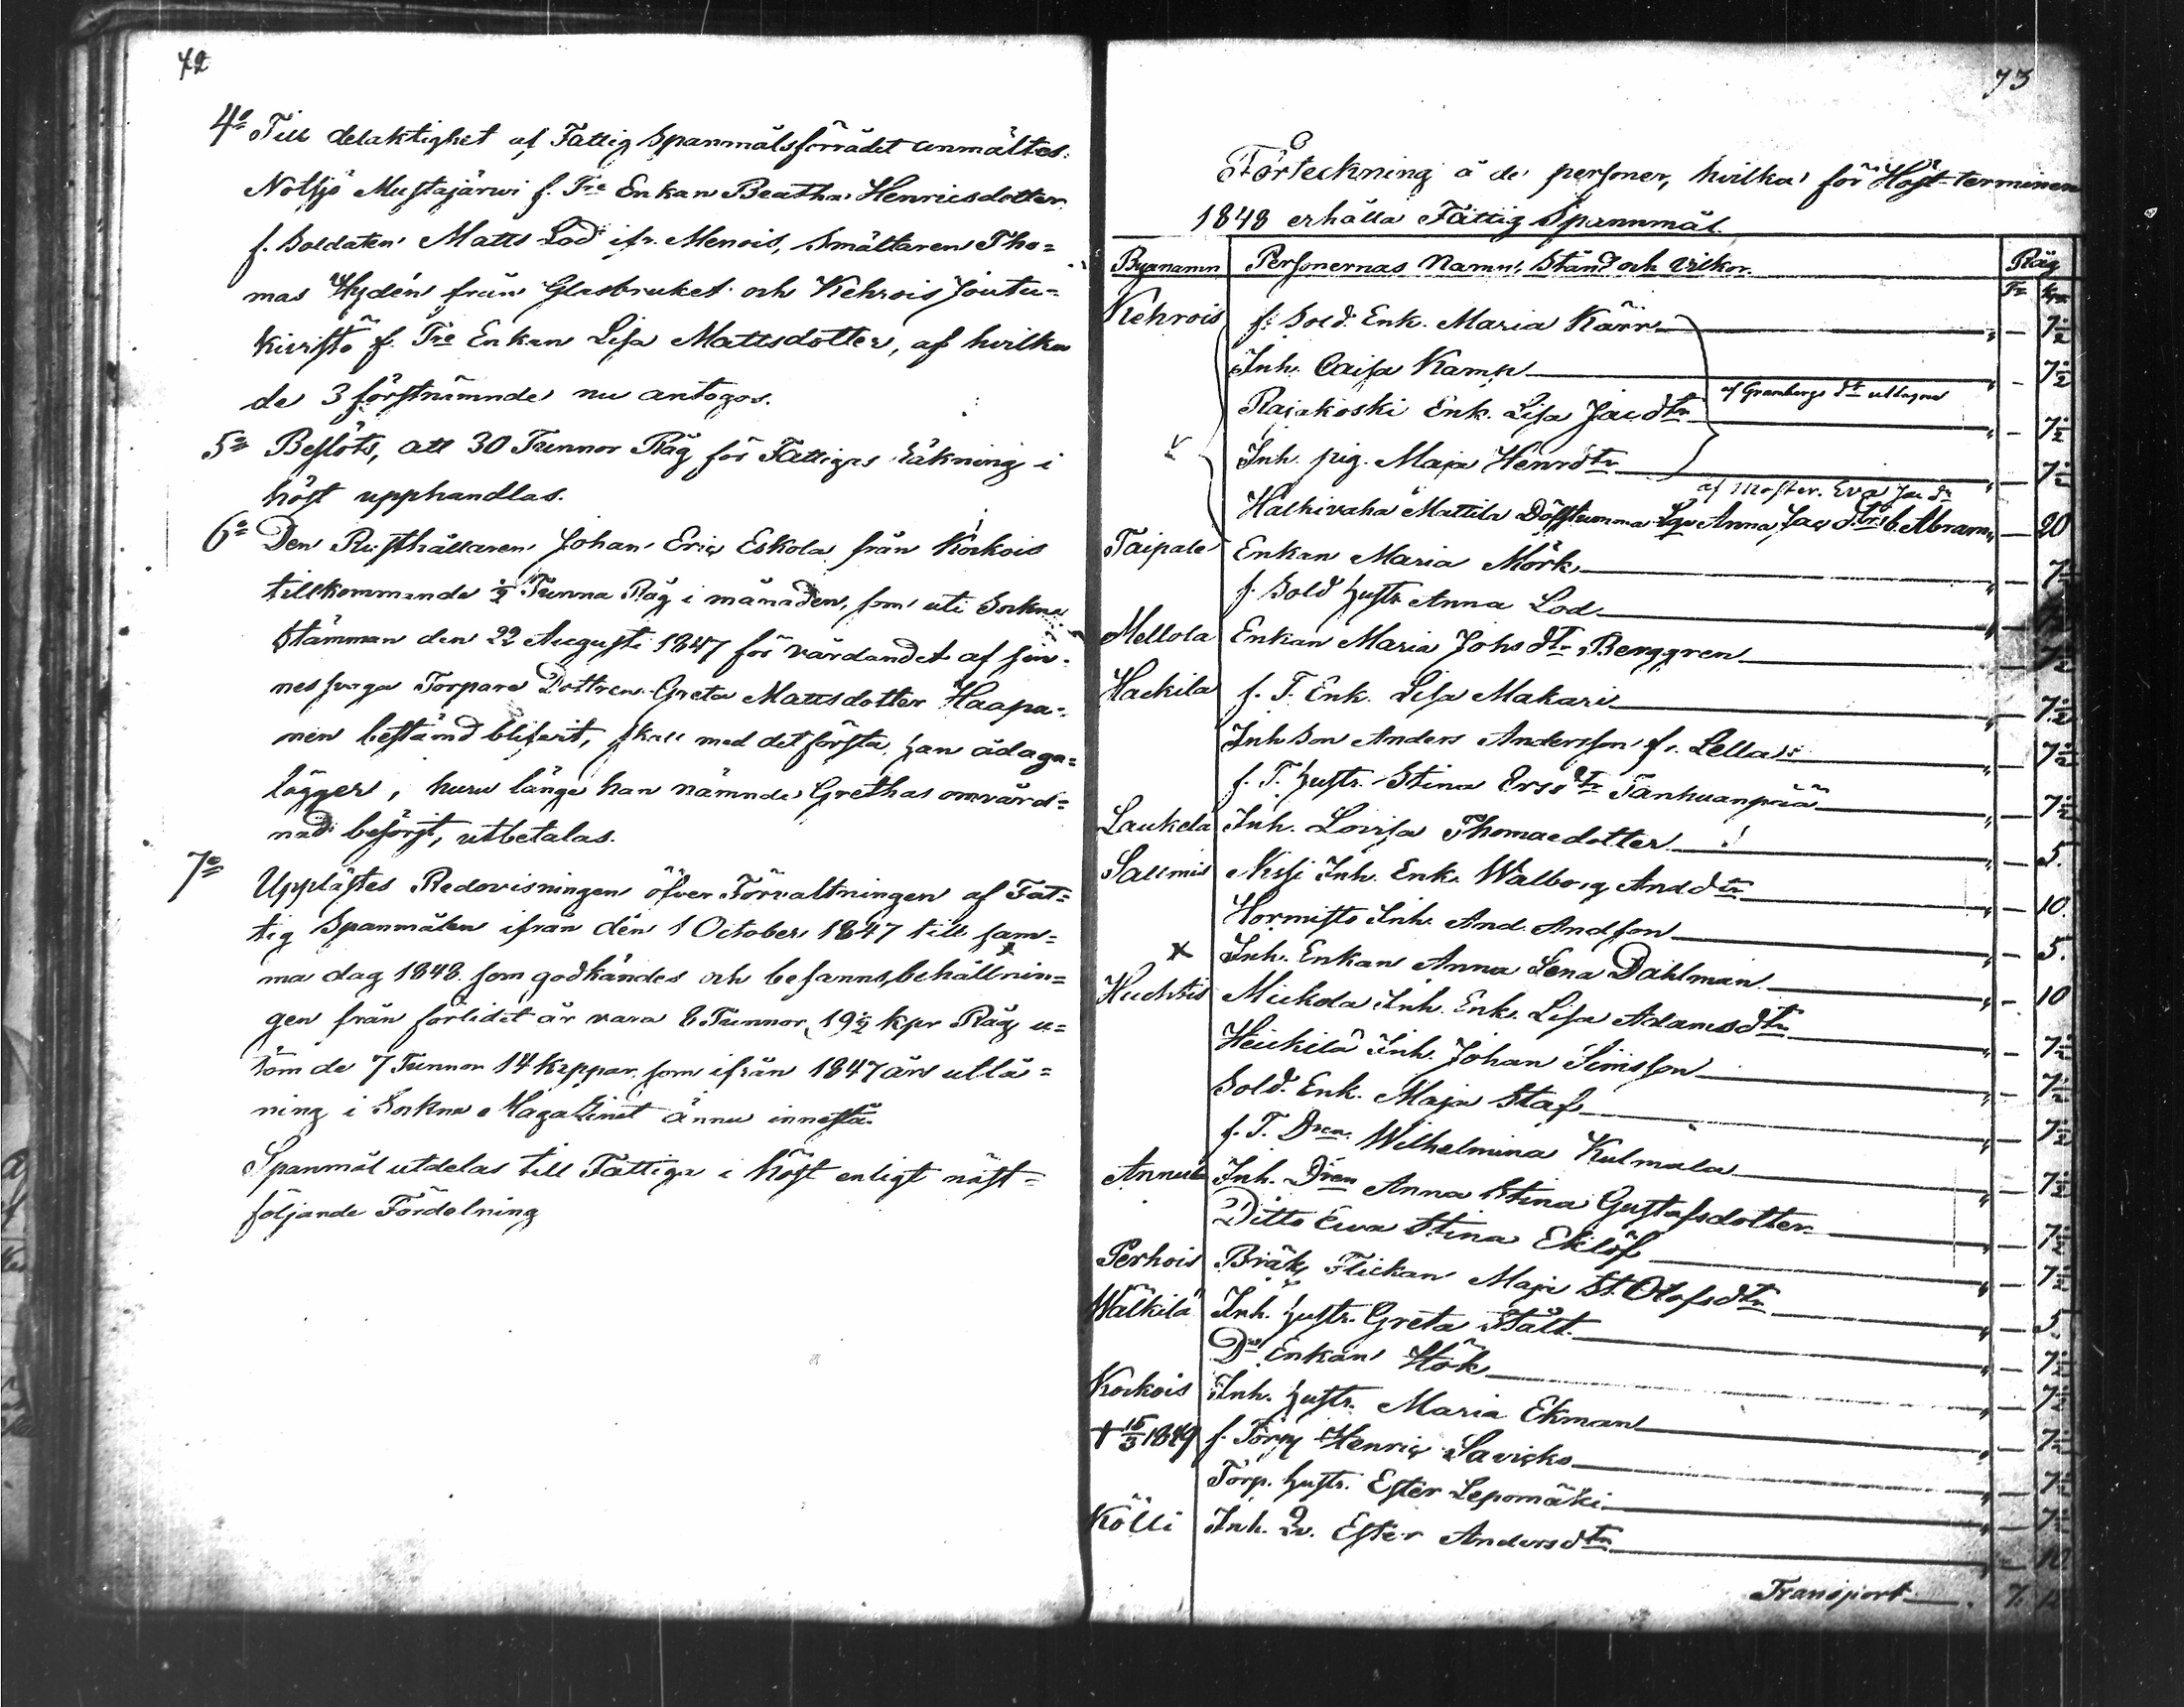 72
4:o Till delaktighet af Fattig Spanmålsförrådet anmältes
Notsjö Mustajärwi f. T:re Enkan Beatha Henricsdotter
f. Soldaten Matts Lod ifr. Menois, Smältaren Tho=
mas Hydén från Glasbruket och Kehrois Joutu=
kivistö f. T:re Enkan Lisa Mattsdotter, af hvilka
de 3 förstnämnde nu antogos.
5:o Beslöts, att 30 Tunnor Råg för Fattigas räkning i
höst upphandlas.
6:o Den Rusthållaren Johan Eric Eskola från Korkois
tillkommande ½ Tunna Råg i månaden, som uti Sokne
Stämman den 22 Augusti 1847 för vårdandet af sin=
nessvaga Torpare Dottren Greta Mattsdotter Haapa=
nen bestämd blifvit, skall med det första han ådaga=
lägger, huru länge han nämnde Grethas omvård=
nad besörjt, utbetalas.
7:o Upplästes Redovisningen öfver Förvaltningen af Fat=
tig Spanmålen ifrån den 1 October 1847 till sam=
ma dag 1848 som godkändes och befanns behållnin=
gen från förlidet år vara 8 Tunnor 19½ kpr Råg u=
tom de 7 Tunnor 14 kappar som ifrån 1847 års utlå=
ning i Sokne Magazinet ännu innestå.
Spanmål utdelas till Fattiga i höst enligt näst=
följande Fördelning
73
Förteckning å de personer, hvilka för Höst-terminen
1848 erhålla Fattig Spannmål
Byanamn Personernas Namn, Stånd och vilkor. Råg
Tr kpr
Kehrois f. Sold. Enk. Maria Kärr " – 7½
Inh. Caisa Kamp " – 7½
af Granbergs d:r uttagna
Rajakoski Enk. Lisa Jacd:tr " – 7½
Inh. pig. Maja Henrd:tr " – 7½
af Moster Eva Jac d:r
Halkivaha Mattila Döfstumma Anna Jac d:tr b. Abram " – 20
Taipale Enkan Maria Mörk " – 7½
f. Sold hustr Anna Lod
Mellola Enkan Maria Johsd:tr Berggren 7½
Hackila f. T. Enk. Lisa Makari " – 7½
Inh Son Anders Andersson fr. Lellais " – 7½
f. T. hustr. Stina Ersd:tr Tanhuanpää " – 7½
Laukela Inh. Lovisa Thomaedotter " – 5.
Sallmis Nisji Inh. Enk. Walborg Andd:tr " – 10.
Hormisto Inh. And. Andson " – 5.
x Inh. Enkan Anna Lena Dahlman " – 10
Huchtis Mickola Inh. Enk. Lisa Adamsd:tr " – 7½
Heickilä Inh. Johan Simsson " – 7½
Sold. Enk. Maja Staf " – 7½
f. T. D:ren Wilhelmina Kulmala " – 7½
Annula Inh. D:ren Anna Stina Gustafsdotter " – 7½
Ditto Ewa Stina Eklöf " – 7½
Perhois Bräkl. Flickan Maja St. Olofsd:tr " – 5.
Wälkilä Inh. hustr. Greta Stålt " – 7½
D:o Enkan Hök " – 7½
Korkois Inh. hustr. Maria Ekman " – 7½
† 15/3 1849 f. Torp Henric Savicko " – 7½
Torp. hustr. Ester Lepomäki " – 7½
Kölli Inh. Q. Ester Andersd:tr " – 10
Transport 7. 12